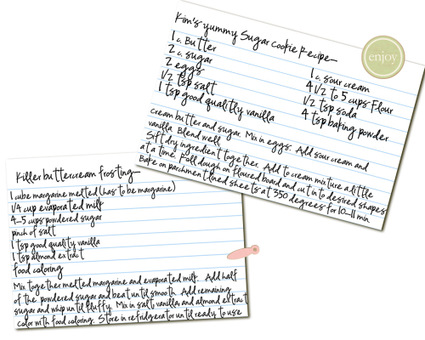 Kim's yummy Sugar cookie Recipe
1 c. Butter
2 c. sugar
2 eggs
1/2 tsp salt
1 tsp good quality vanilla
1 c. sour cream
4 1/2 to 5 cups Flour
1/2 tsp soda
4 tsp baking powder
Cream butter and sugar. Mix in eggs. Add sour cream and
vanilla. Blend well.
Sift dry ingredients together. Add to cream mixture a little
at a time. Fold dough on floured board and cut into desired shapes
Bake on parchment lined sheets at 350 degrees for 10-11 min
enjoy
Killer buttercream frosting
1 cube margarine melted (has to be margarine)
1/4 cup evaporated milk
4-5 cups powdered sugar
pinch of salt
1 tsp good quality vanilla
1 tsp almond extract
food coloring
Mix together melted margarine and evaporated milk. Add half
of the powdered sugar and beat until smooth. Add remaining
sugar and whip until fluffy. Mix in salt, vanilla and almond extract
color with food coloring. Store in refridgerator until ready to use